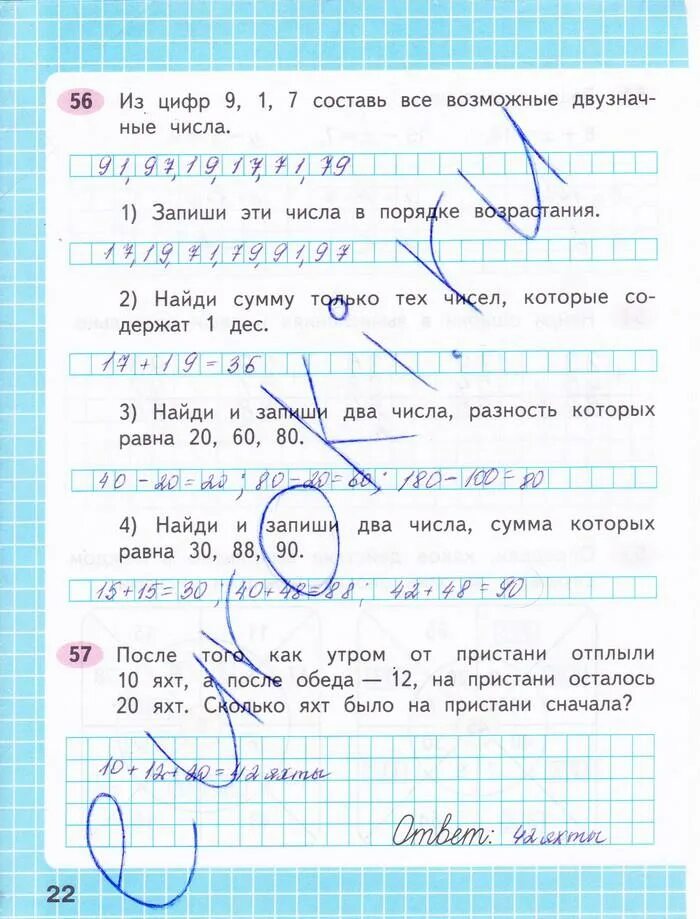 56 Из цифр 9, 1, 7 составь все возможные двузнач-
ные числа.
91, 97, 19, 17, 71, 79
1) Запиши эти числа в порядке возрастания.
17, 19, 71, 79, 91, 97
2) Найди сумму только тех чисел, которые со-
держат 1 дес.
17 + 19 = 36
3) Найди и запиши два числа, разность которых
равна 20, 60, 80.
40 - 20 = 20 ; 80 - 20 = 60; 180 - 100 = 80
4) Найди и запиши два числа, сумма которых
равна 30, 88, 90.
15 + 15 = 30 ; 40 + 48 = 88 ; 42 + 48 = 90
57 После того как утром от пристани отплыли
10 яхт, а после обеда — 12, на пристани осталось
20 яхт. Сколько яхт было на пристани сначала?
10 + 12 + 20 = 42 яхты
Ответ: 42 яхты
22